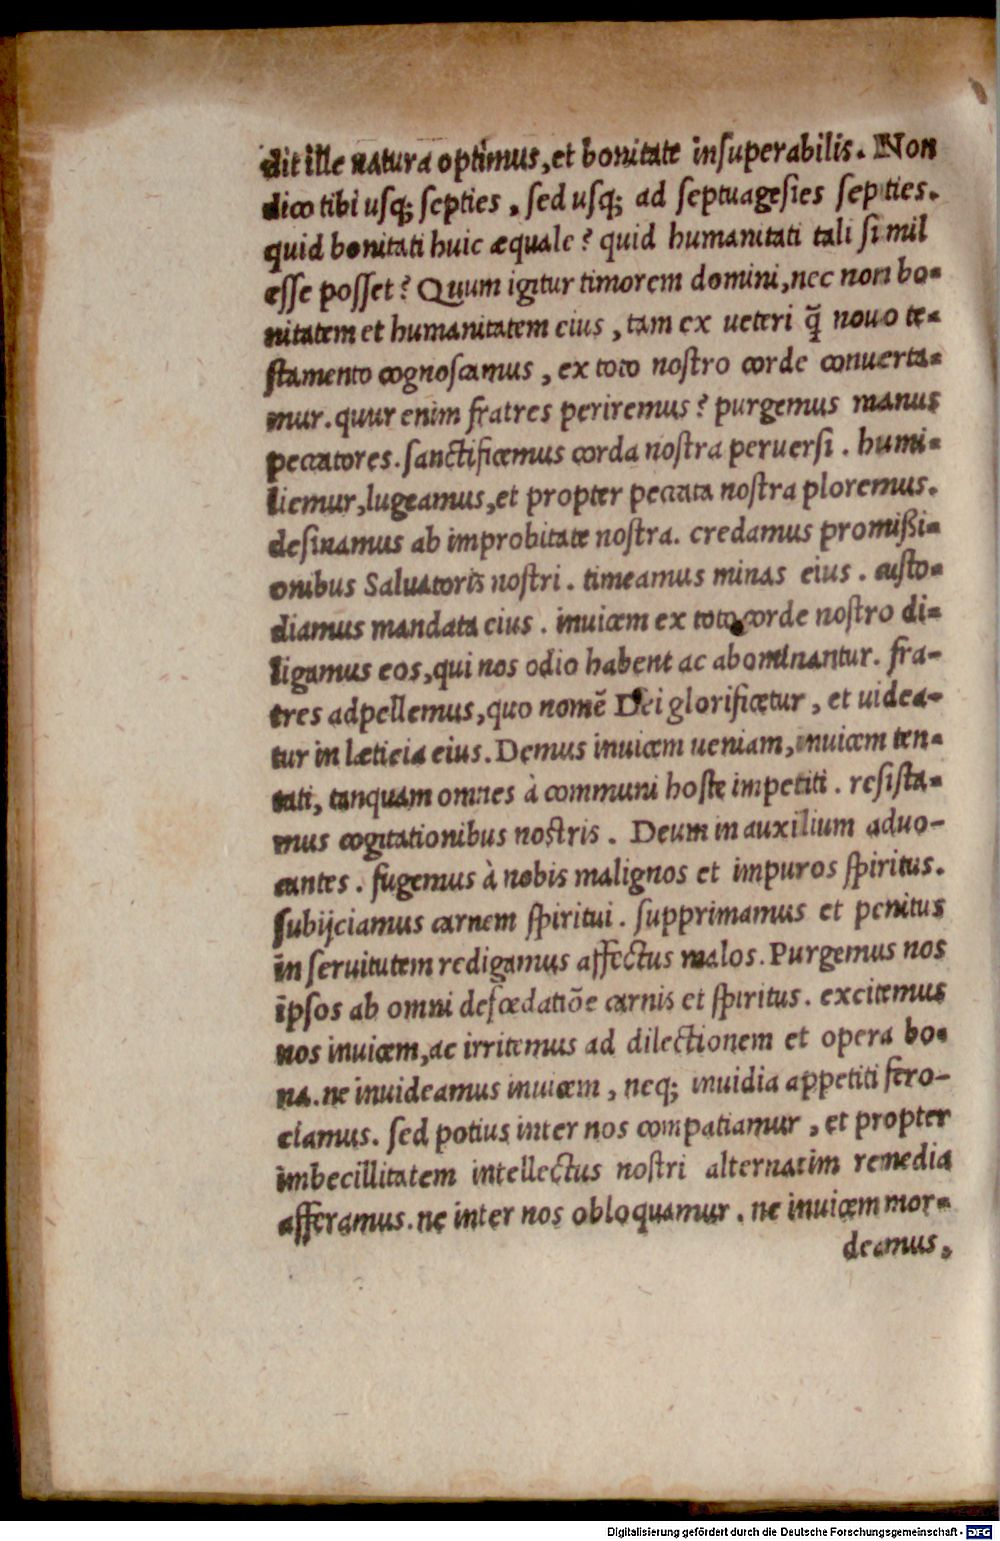 dit ille natura optimus, et bonitate insuperabilis. Non
dico tibi usq; septies, sed usq; ad septuagesies septies.
quid bonitati huic æquale? quid humanitati tali simil
esse posset? Quum igitur timorem domini, nec non bo-
nitatem et humanitatem eius, tam ex ueteri q̃ nouo te-
stamento cognoscamus, ex toto nostro corde conuerta-
mur. quur enim fratres periremus? purgemus manus
peccatores. sanctificemus corda nostra peruersi. humi-
liemur, lugeamus, et propter peccata nostra ploremus.
desinamus ab improbitate nostra. credamus promißi-
onibus Saluatoris nostri. timeamus minas eius. custo-
diamus mandata eius. inuicem ex toto corde nostro di-
ligamus eos, qui nos odio habent ac abominantur. fra-
tres adpellemus, quo nomẽ Dei glorificetur, et uidea-
tur in læticia eius. Demus inuicem ueniam, inuicem ten-
tati, tanquam omnes à communi hoste impetiti. resista-
mus cogitationibus nostris. Deum in auxilium aduo-
cantes. fugemus à nobis malignos et impuros spiritus.
subijciamus carnem spiritui. supprimamus et penitus
in seruitutem redigamus affectus malos. Purgemus nos
ipsos ab omni defœdatiõe carnis et spiritus. excitemus
nos inuicem, ac irritemus ad dilectionem et opera bo-
na. ne inuideamus inuicem, neq; inuidia appetiti fero-
ciamus. sed potius inter nos compatiamur, et propter
imbecillitatem intellectus nostri alternatim remedia
afferamus. ne inter nos obloquamur. ne inuicem mor-
deamus,
Digitalisierung gefördert durch die Deutsche Forschungsgemeinschaft - DFG